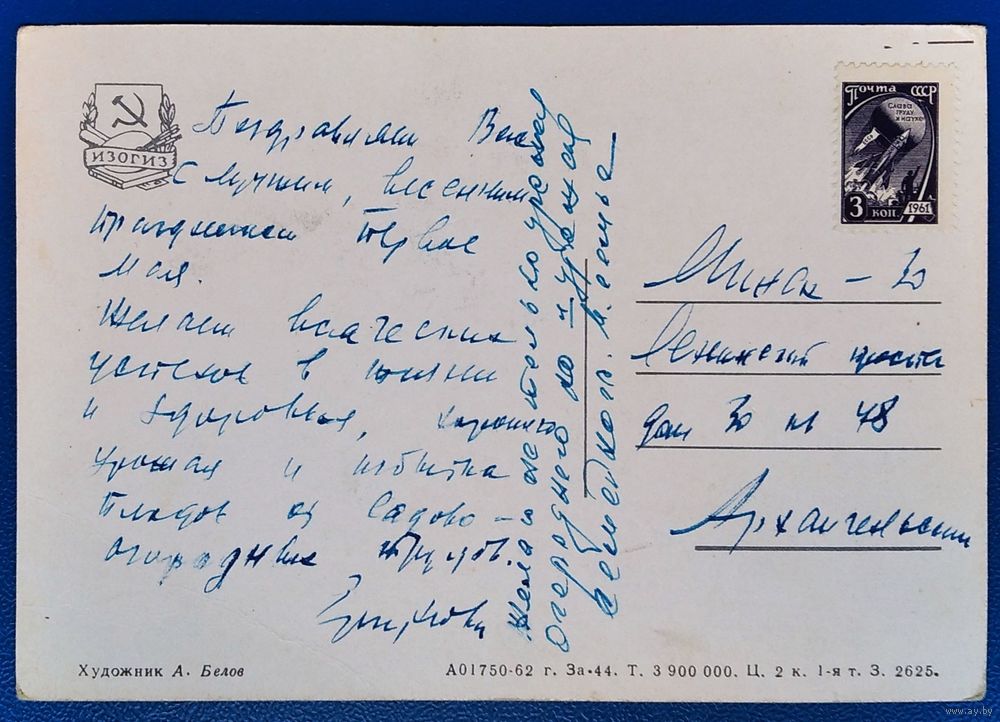 ИЗОГИЗ
Поздравляем Вас
с лучшим, весенним
праздником Первое
Мая.
Желаем всяческих
успехов в жизни
и здоровья, хорошего
урожая и избытка
плодов от садово-
огородных трудов.
Желаю не только урожая
огородного но и урожая
семьи
Почта СССР
Слава
труду
и науке
3 коп. 1961
Минск - 30
Ленинский просп
дом 30 кв 48
Архангельским
Художник А. Белов
А01750-62 г. За-44. Т. 3 900 000. Ц. 2 к. 1-я т. З. 2625.
www.ay.by